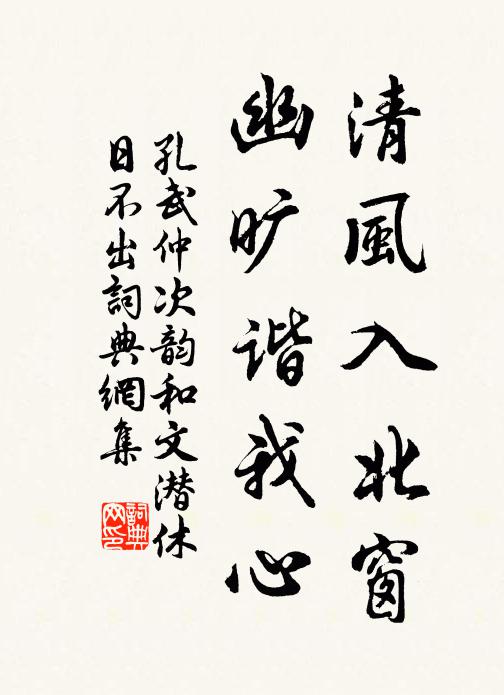 清風入北窗
幽旷谐我心
孔武仲次韵和文潜休
日不出詞典網集
詞典
网印